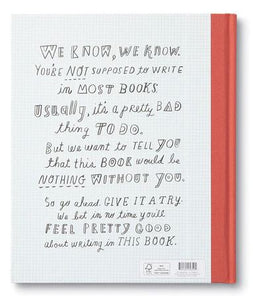 WE KNOW, WE KNOW.
YOU'RE NOT SUPPOSED TO WRITE
IN MOST BOOKS.
USUALLY, it's a pretty BAD
thing TO DO.
But we want to TELL YOU
that this BOOK would be
NOTHING WITHOUT YOU.
So go ahead. GIVE IT A TRY.
We bet in no time you'll
FEEL PRETTY GOOD
about writing in THIS BOOK.